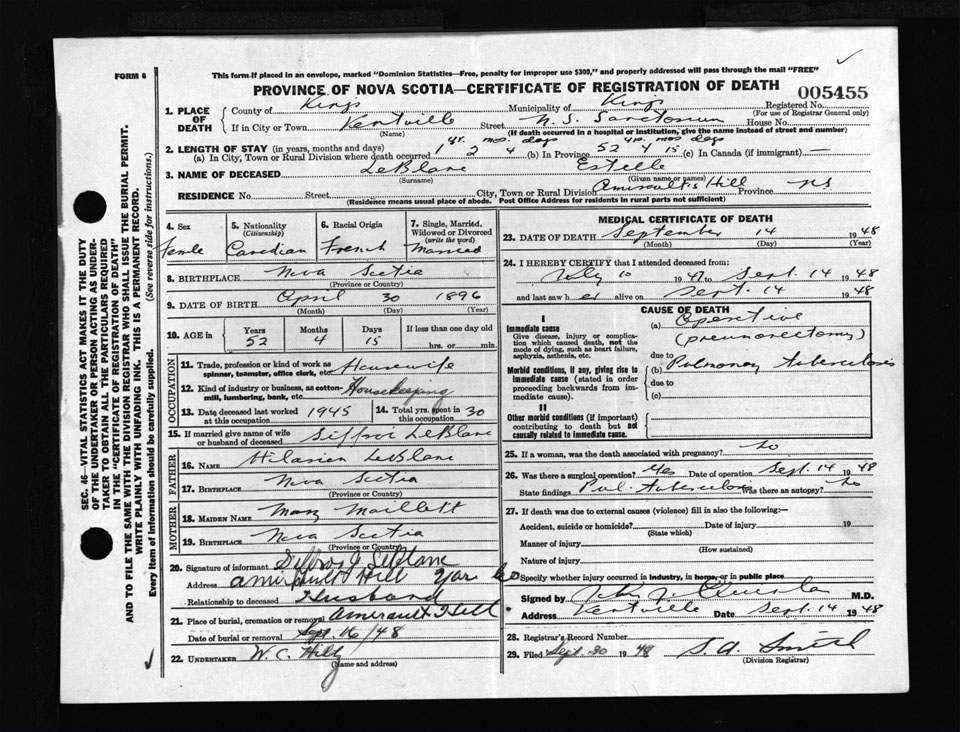 This form if placed in an envelope, marked "Dominion Statistics—Free, penalty for improper use $300," and properly addressed will pass through the mail "FREE"
FORM 6
PROVINCE OF NOVA SCOTIA—CERTIFICATE OF REGISTRATION OF DEATH
005455
1. PLACE OF DEATH
County of Kings Municipality of Kings Registered No.
(For use of Registrar General only)
If in City or Town Kentville Street N. S. Sanatorium House No.
(Name) (If death occurred in a hospital or institution, give the name instead of street and number)
2. LENGTH OF STAY (in years, months and days) yr. mos. days yrs. mos. days
(a) In City, Town or Rural Division where death occurred 1 2 4 (b) In Province 52 4 15 (c) In Canada (if immigrant) —
3. NAME OF DECEASED LeBlanc Estelle
(Surname) (Given name or names)
RESIDENCE No. Street City, Town or Rural Division Amirault's Hill Province NS
(Residence means usual place of abode. Post Office Address for residents in rural parts not sufficient)
4. Sex Female
5. Nationality (Citizenship) Canadian
6. Racial Origin French
7. Single, Married, Widowed or Divorced (write the word) Married
8. BIRTHPLACE Nova Scotia
(Province or Country)
9. DATE OF BIRTH April 30 1896
(Month) (Day) (Year)
10. AGE in Years Months Days If less than one day old
52 4 15 hrs. or min.
OCCUPATION
11. Trade, profession or kind of work as spinner, teamster, office clerk, etc. Housewife
12. Kind of industry or business, as cotton-mill, lumbering, bank, etc. Housekeeping
13. Date deceased last worked at this occupation 1945
14. Total yrs. spent in this occupation 30
15. If married give name of wife or husband of deceased Siffroi LeBlanc
FATHER
16. NAME Hilarien LeBlanc
17. BIRTHPLACE Nova Scotia
(Province or Country)
MOTHER
18. MAIDEN NAME Mary Maillett
19. BIRTHPLACE Nova Scotia
(Province or Country)
20. Signature of informant Siffroi J LeBlanc
Address Amirault Hill Yar Co
Relationship to deceased Husband
21. Place of burial, cremation or removal Amirault Hill
Date of burial or removal Sept. 16/48
22. UNDERTAKER W. C. Hiltz
(Name and address)
MEDICAL CERTIFICATE OF DEATH
23. DATE OF DEATH September 14 1948
(Month) (Day) (Year)
24. I HEREBY CERTIFY that I attended deceased from:
July 10 1947 to Sept. 14 1948
and last saw her alive on Sept. 14 1948
CAUSE OF DEATH
I
Immediate cause
Give disease, injury or complication which caused death, not the mode of dying, such as heart failure, asphyxia, asthenia, etc.
(a) Operative
(pneumonectomy)
due to
Morbid conditions, if any, giving rise to immediate cause (stated in order proceeding backwards from immediate cause).
(b) Pulmonary Tuberculosis
due to
(c)
II
Other morbid conditions (if important) contributing to death but not causally related to immediate cause.
25. If a woman, was the death associated with pregnancy? no
26. Was there a surgical operation? Yes Date of operation Sept. 14 1948
State findings Pul. Tuberculosis Was there an autopsy? no
27. If death was due to external causes (violence) fill in also the following:—
Accident, suicide or homicide? Date of injury 19
(State which)
Manner of injury
(How sustained)
Nature of injury
Specify whether injury occurred in industry, in home, or in public place
Signed by M.D.
Address Kentville Date Sept. 14 1948
28. Registrar's Record Number
29. Filed Sept. 30 1948 S. A. Smith
(Division Registrar)
SEC. 46—VITAL STATISTICS ACT MAKES IT THE DUTY
OF THE UNDERTAKER OR PERSON ACTING AS UNDER-
TAKER TO OBTAIN ALL THE PARTICULARS REQUIRED
IN THE "CERTIFICATE OF REGISTRATION OF DEATH"
AND TO FILE THE SAME WITH THE DIVISION REGISTRAR WHO SHALL ISSUE THE BURIAL PERMIT.
WRITE PLAINLY WITH UNFADING INK. THIS IS A PERMANENT RECORD.
Every item of information should be carefully supplied. (See reverse side for instructions.)